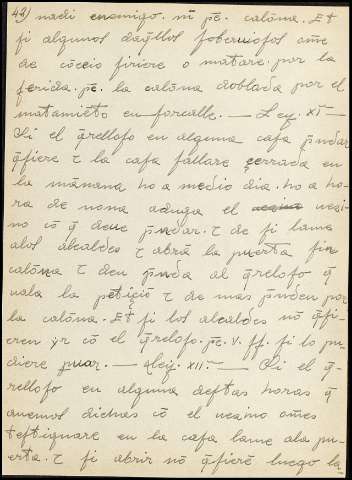 42) nadi enemigo. nī pē. calōna. Et
si algunos dāq̄llos soberuiosos om̄e
de cōceio firiere o matare. por la
ferida. pē. la calōna doblada por el
matamiēto en forcalle. — Ley. XI —
Si el q̄relloso en alguna casa p̄ndar
q̄siere τ la casa fallare çerrada en
la mānana ho a medio dia. ho a ho-
ra de nona aduga el uezi-
no cō q̄ deue p̄ndar. τ de si lame
alos alcaldes τ abrā la puerta sin
calōna τ den p̄nda al q̄reloso q̄
uala la petiçiō τ de mas p̄nden por
la calōna. Et si los alcaldes nō q̄si-
eren yr cō el q̄reloso. pē. V. ss. si lo pu-
diere puar. — Ley. XII — Si el q̄-
relloso en alguna destas horas q̄
auemos dichas cō el uezino om̄es
testiguare en la casa lame ala pu-
erta. τ si abrir nō q̄sierē luego la